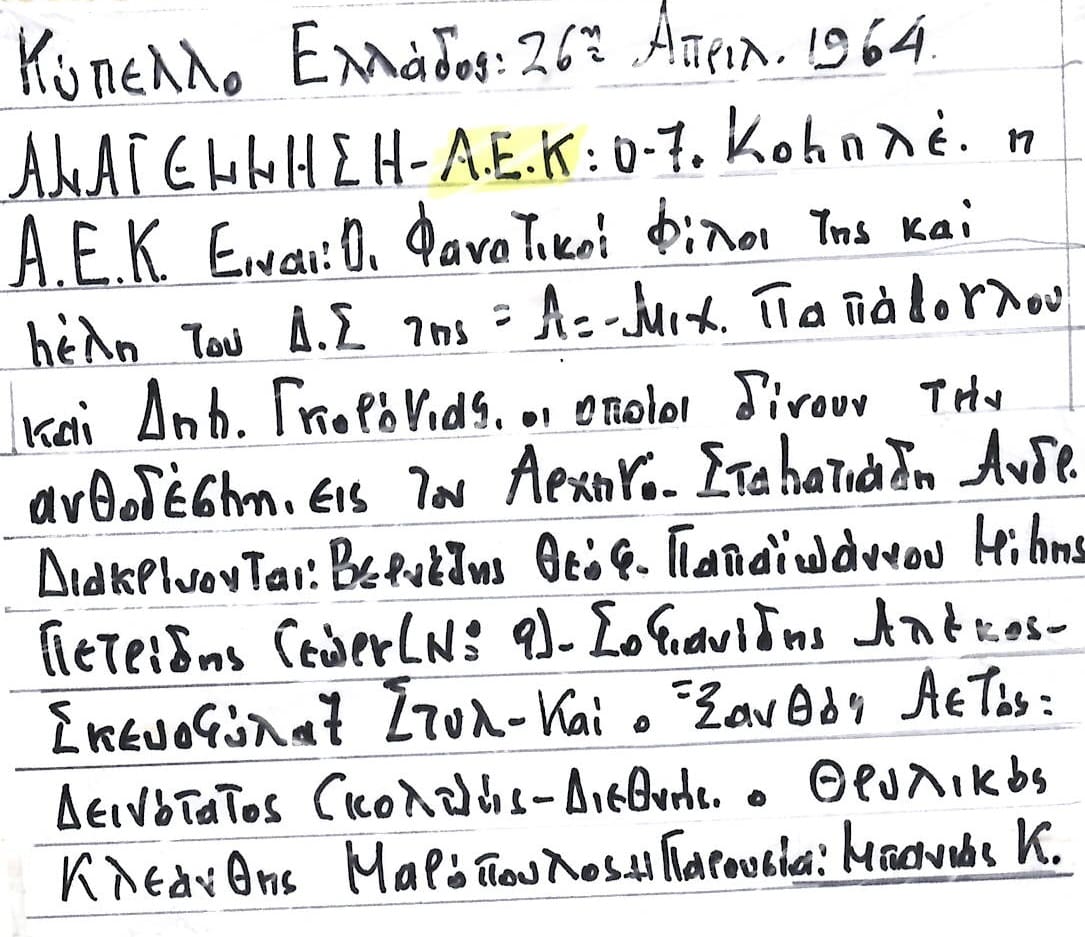 Κύπελλο Ελλάδος: 26η Απριλ. 1964.
ΑΝΑΓΕΝΝΗΣΗ-Α.Ε.Κ: 0-7. Κομπλέ. η
Α.Ε.Κ. Ειναι: Οι Φανατικοί φίλοι της και
μέλη του Δ.Σ της = Α=-Μιχ. Παπάζογλου
και Δημ. Γκιοβάνιδς. οι οποίοι δίνουν την
ανθοδέσμη. εις τον Αρχηγό- Σταματιάδη Ανδρ.
Διακρίνονται: Βερνέζης Θεόφ. Παπαϊωάννου Μίμης
Πετρίδης Γεώργ (Ν: 9)- Σοφιανίδης Αλέκος-
Σκευοφύλαξ Στυλ- Και ο =Ξανθός Αετός:
Δεινότατος Γκολτζής-Διεθνής. ο Θρυλικός
Κλεάνθης Μαρόπουλος Η Παρουσία: Μπανιάς Κ.